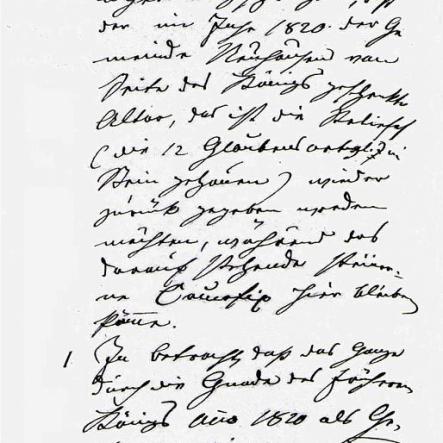 der im Jahr 1820 der Ge
meinde Neuhausen von
Seite des Königs geschenkte
Altar, das ist die Reliefs
(die 12 Glaubensartikel in
Stein gehauen) wieder
zurück gegeben werden
möchten, während das
darauf stehende steiner-
ne Crucifix hier bleiben
könne.
1 In betracht, daß das Ganze
durch die Gnade des früheren
Königs anno 1820 als Ge-